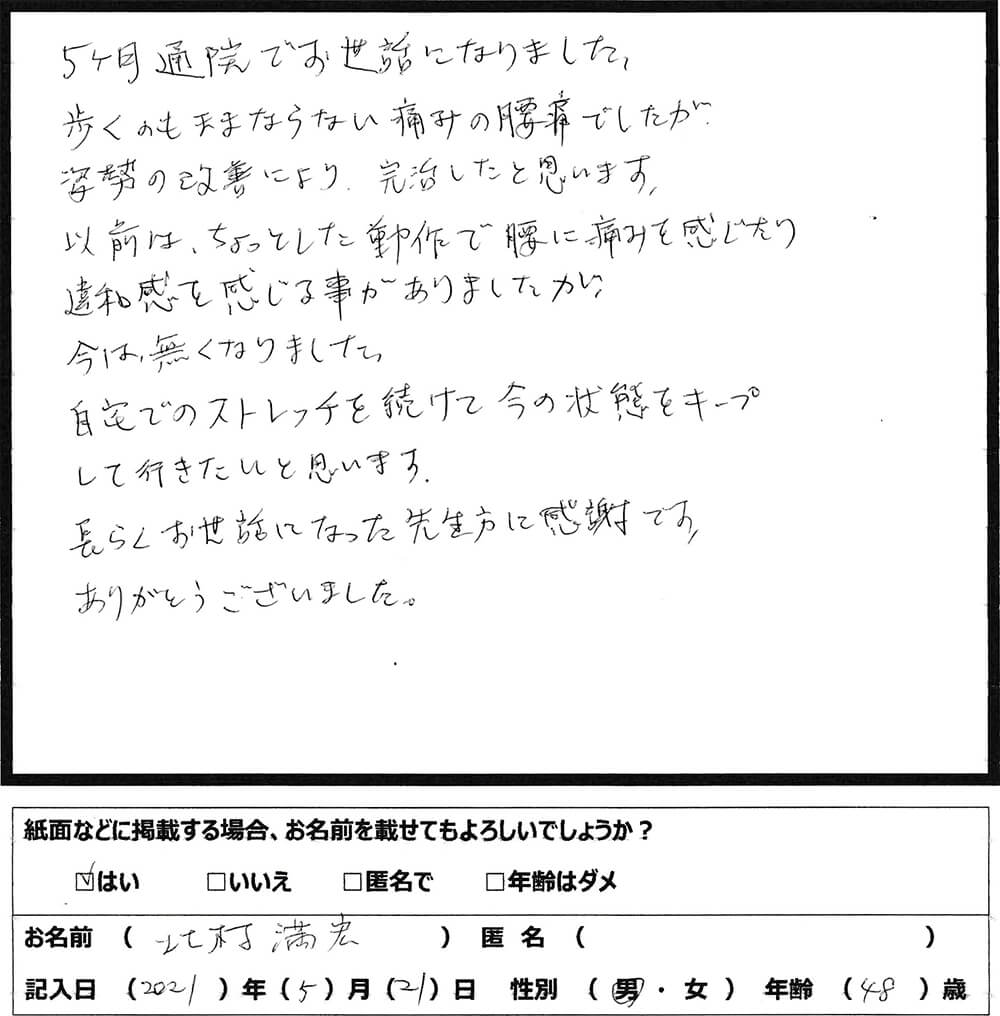 5ヶ月通院でお世話になりました。
歩くのもままならない痛みの腰痛でしたが、
姿勢の改善により、完治したと思います。
以前は、ちょっとした動作で腰に痛みを感じたり
違和感を感じる事がありましたが、
今は、無くなりました。
自宅でのストレッチを続けて今の状態をキープ
して行きたいと思います。
長らくお世話になった先生方に感謝です。
ありがとうございました。
紙面などに掲載する場合、お名前を載せてもよろしいでしょうか？
☑はい □いいえ □匿名で □年齢はダメ
お名前 （ 北村 満宏 ） 匿 名 （ ）
記入日 （2021 ）年（5 ）月（21）日 性別 （ 男 ・ 女 ） 年齢 （48 ）歳